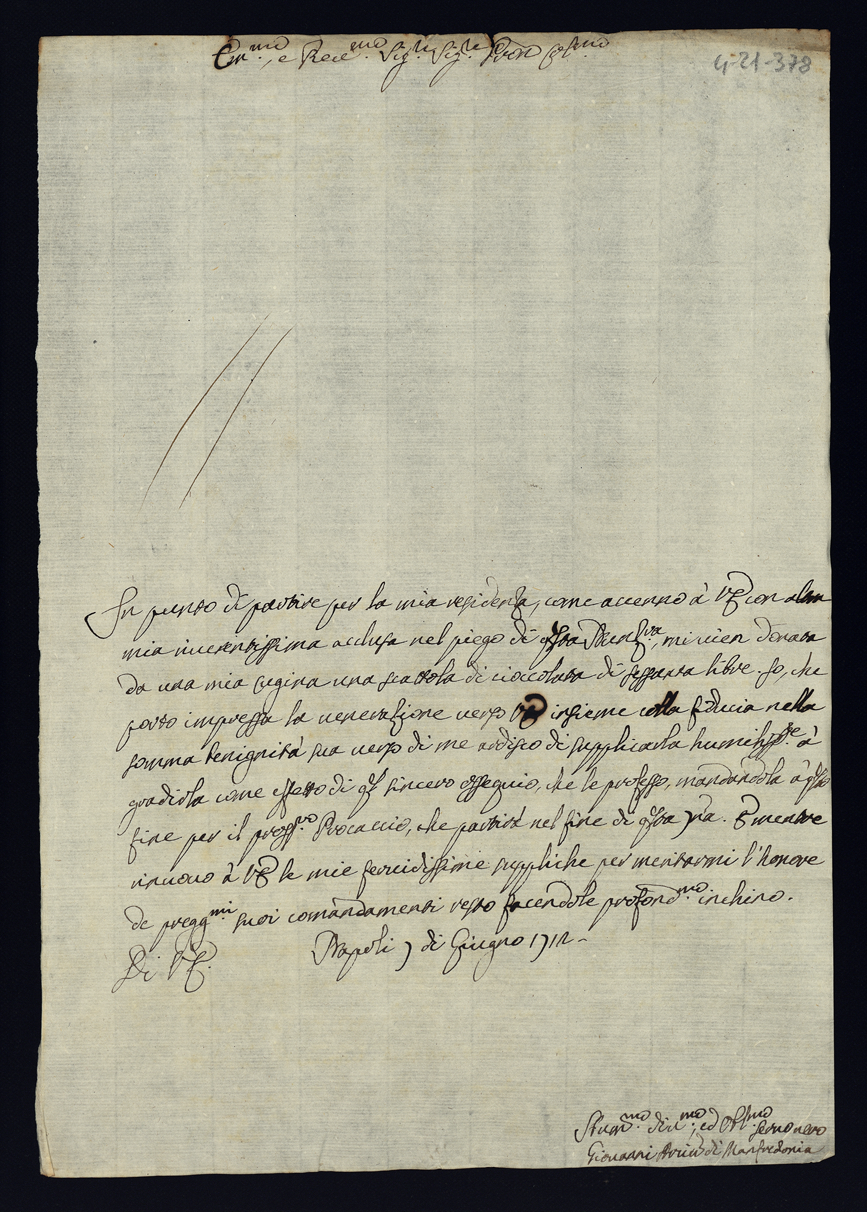 Em.mo, e Rev.mo Sig.re Sig.re Pron Col.mo
4-21-378
In punto di partire per la mia residenza, come accenno à V.E. con altra
mia riverentissima acclusa nel piego di q.sta Nunz.ra, mi vien donata
da una mia Cugina una scattola di cioccolata di sessanta libre. Io, che
porto impressa la venerazione verso V.E. insieme colla fiducia nella
somma benignità sua verso di me ardisco di supplicarla humiliss.te à
gradirla come effetto di q.l sincero ossequio, che le professo, mandandola à q.sto
fine per il pross.o Procaccio, che partirà nel fine di q.sta 7na. E mentre
rinuovo à V.E. le mie fervidissime suppliche per meritarmi l'honore
de pregg.mi suoi comandamenti resto facendole profond.mo inchino.
Di V.E. Napoli 7 di Giugno 1712
Hum.mo div.mo, ed Obl.mo Servo vero
Giovanni Arciv di Manfredonia